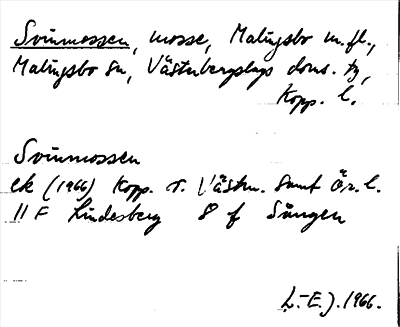 Svinmossen, mosse, Malingsbo m.fl.,
Malingsbo sn, Västerbergslags doms. tg,
Kopp. l.
Svinmossen
ek (1966) Kopp. o. Västm. samt Ör. l.
11 F Lindesberg 8 f Sången
L-E. J. 1966.